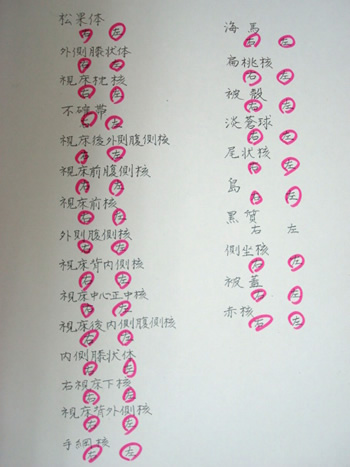 松果体
右 左
外側膝状体
右 左
視床枕核
右 左
不確帯
右 左
視床後外則腹側核
右 左
視床前腹側核
右 左
視床前核
右 左
外則腹側核
右 左
視床背内側核
右 左
視床中心正中核
右 左
視床後内側腹側核
右 左
内側膝状体
右 左
右視床下核
右 左
視床背外側核
右 左
手綱核
右 左
海馬
右 左
扁桃核
右 左
被殻
右 左
淡蒼球
右 左
尾状核
右 左
島
右 左
黒質
右 左
側坐核
右 左
被蓋
右 左
赤核
右 左